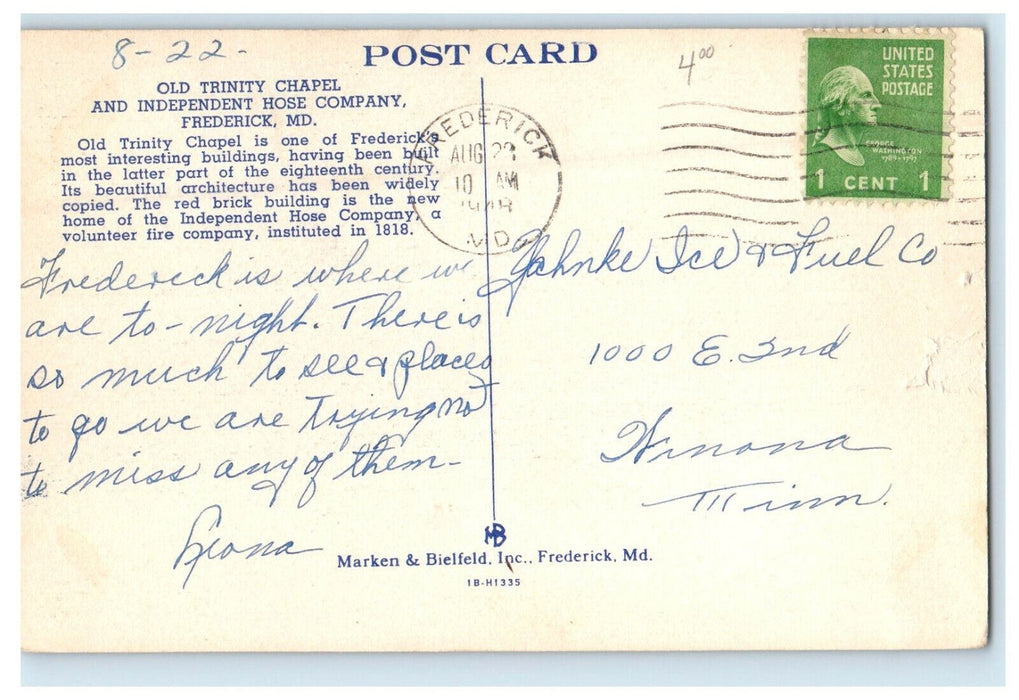 8-22-
POST CARD
4⁰⁰
UNITED
STATES
POSTAGE
GEORGE
WASHINGTON
1789-1797
1 CENT 1
OLD TRINITY CHAPEL
AND INDEPENDENT HOSE COMPANY,
FREDERICK, MD.
Old Trinity Chapel is one of Frederick's
most interesting buildings, having been built
in the latter part of the eighteenth century.
Its beautiful architecture has been widely
copied. The red brick building is the new
home of the Independent Hose Company, a
volunteer fire company, instituted in 1818.
FREDERICK
AUG 23
10 AM
MD.
Frederick is where we
are to-night. There is
so much to see & places
to go we are trying not
to miss any of them-
Leona
Jahnke Ice & Fuel Co
1000 E. 2nd
Winona
Minn.
MB
Marken & Bielfeld, Inc., Frederick, Md.
1B-H1335